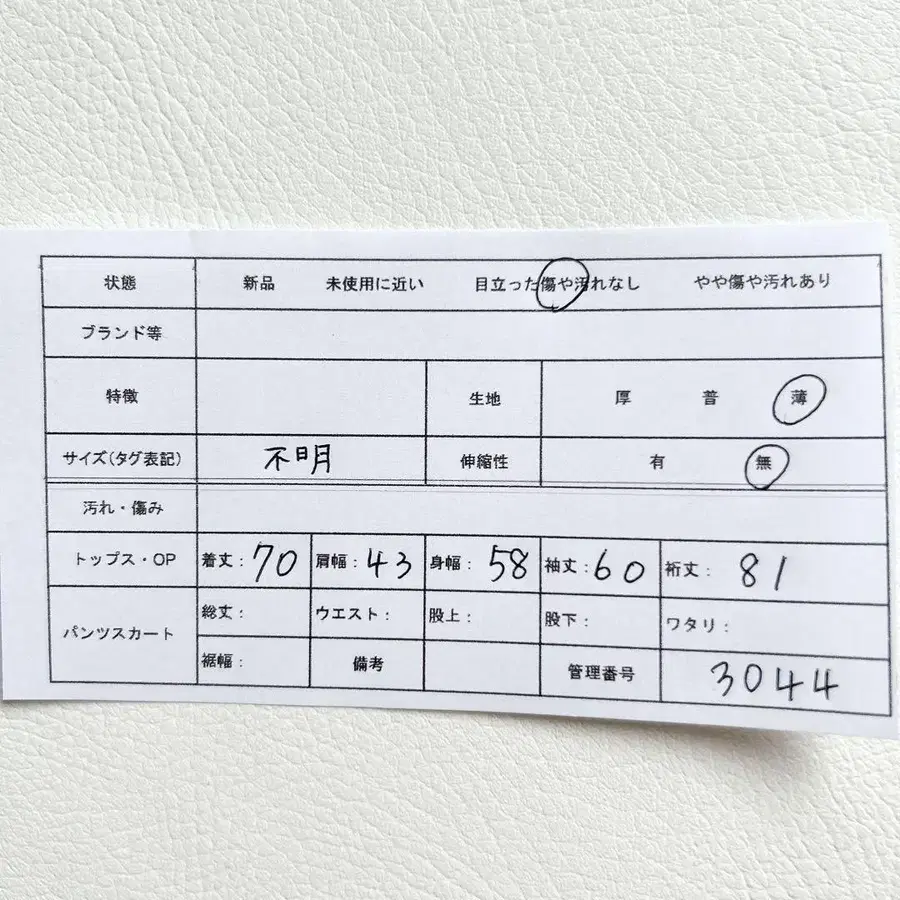 状態 新品 未使用に近い 目立った傷や汚れなし やや傷や汚れあり
ブランド等
特徴 生地 厚 普 薄
サイズ(タグ表記) 不明 伸縮性 有 無
汚れ・傷み
トップス・OP 着丈:70 肩幅:43 身幅:58 袖丈:60 裄丈:81
パンツスカート 総丈: ウエスト: 股上: 股下: ワタリ:
裾幅: 備考 管理番号 3044